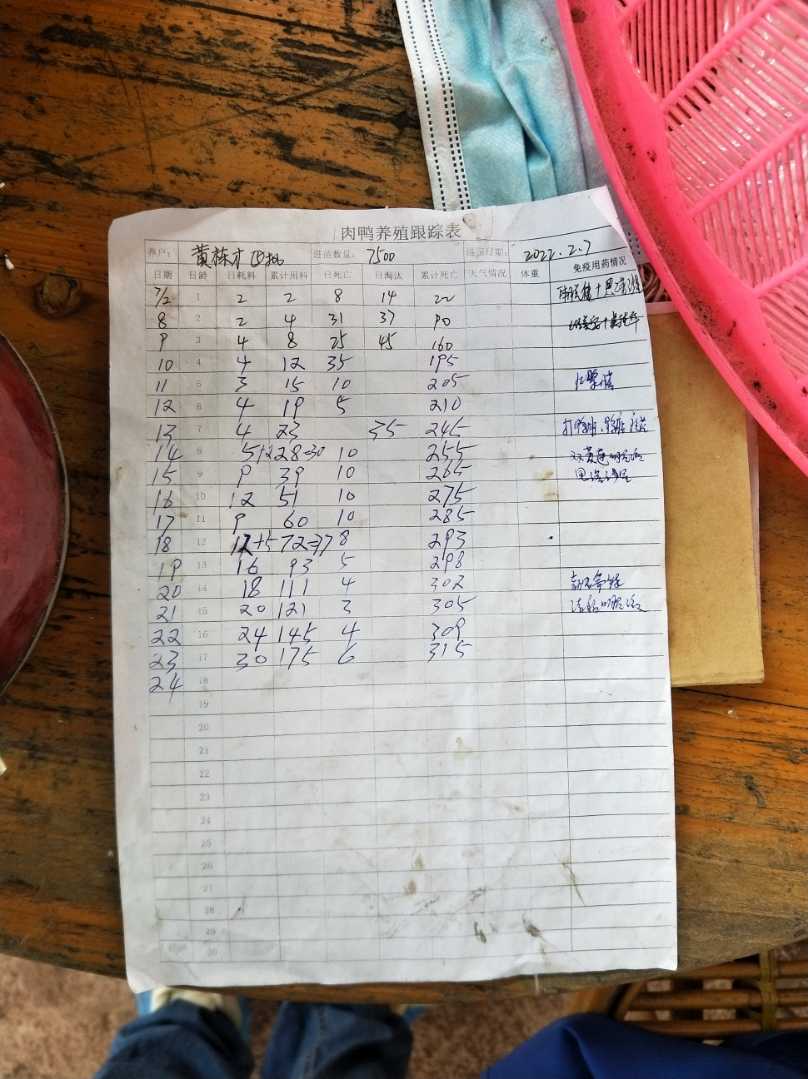 肉鸭养殖跟踪表
养户: 黄栋才 进苗数量: 7500 进苗日期: 2022.2.7
日期 日龄 日耗料 累计用料 日死亡 日淘汰 累计死亡 天气情况 体重 免疫用药情况
7/2 1 2 2 8 14 22
8 2 2 4 31 37 90
9 3 4 8 25 45 160
10 4 4 12 35 195
11 5 3 15 10 205
12 6 4 19 5 210
13 7 4 23 35 245
14 8 5+2 28=30 10 255
15 9 9 39 10 265
16 10 12 51 10 275
17 11 9 60 10 285
18 12 12+5 72=77 8 293
19 13 16 93 5 298
20 14 18 111 4 302
21 15 20 121 3 305
22 16 24 145 4 309
23 17 30 175 6 315
24 18
19
20
21
22
23
24
25
26
27
28
29
30